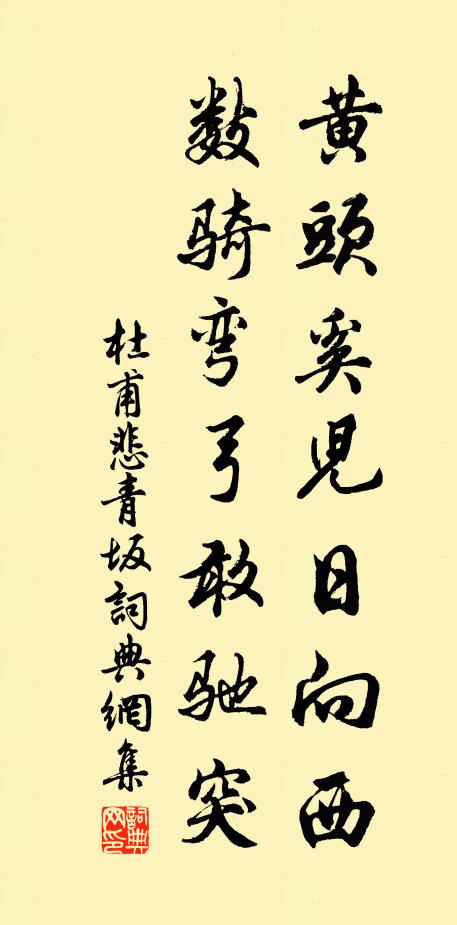 黄頭奚兒日向西
数騎弯弓敢驰突
杜甫悲青坂詞典網集
詞典
网印